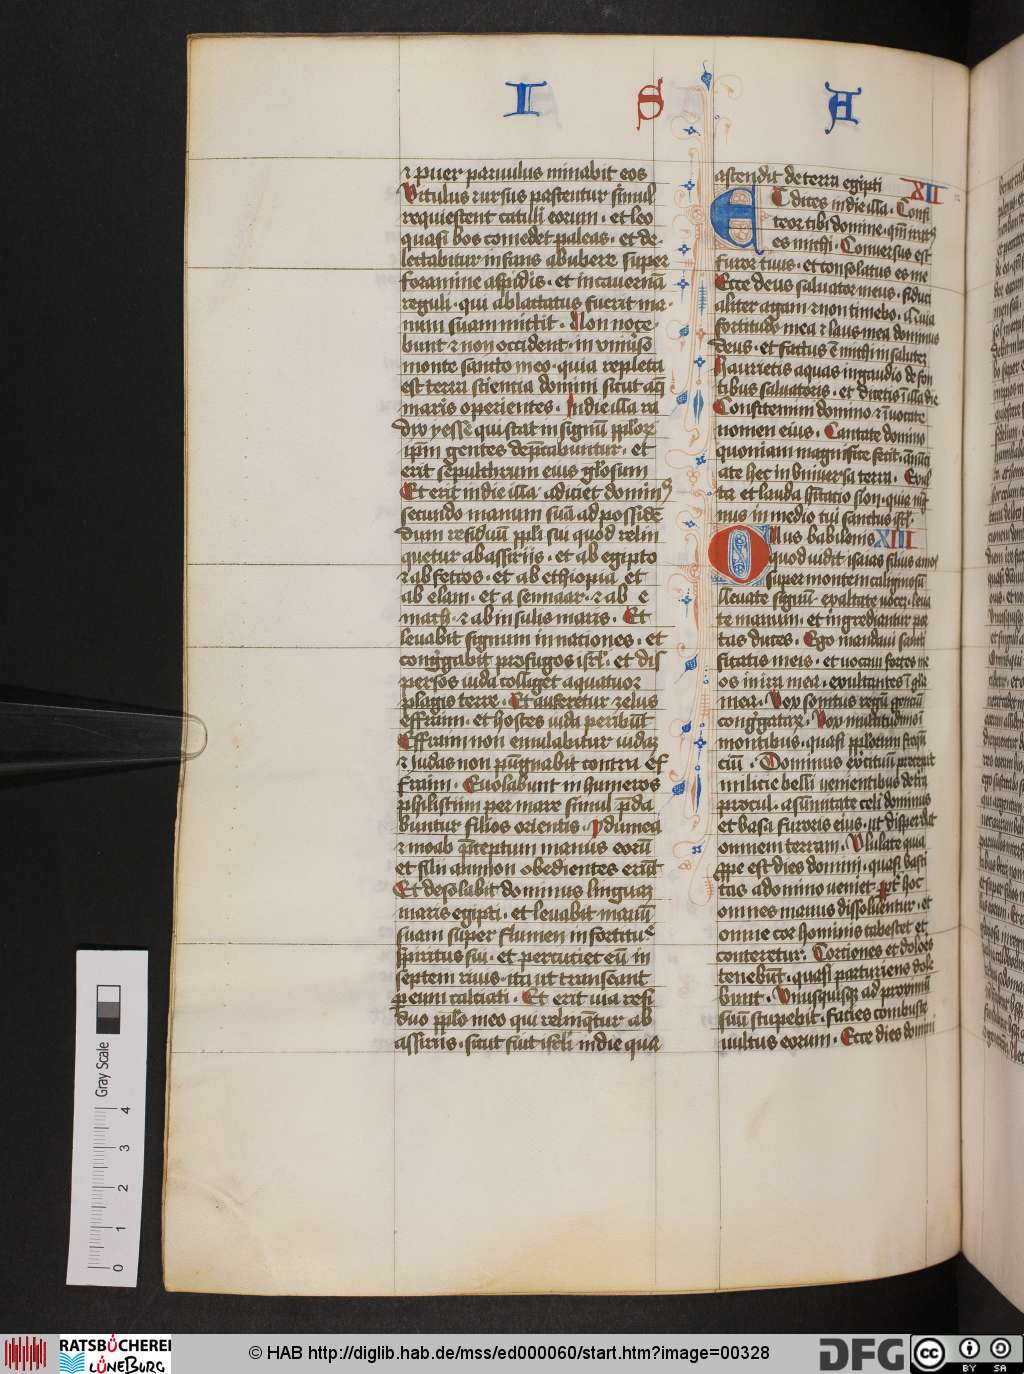 I S A
⁊ puer paruulus minabit eos
Vitulus ⁊ ursus pascentur simul
requiescent catuli eorum · et leo
quasi bos comedet paleas · et de-
lectabitur infans ab ubere super
foramine aspidis · et in cauernā
reguli · qui ablactatus fuerit ma-
num suam mittit · Non noce-
bunt ⁊ non occident · in vniu͛so
monte sancto meo · quia repleta
est terra scientia domini sicut aq̄
maris operientes · In die illa ra
dix yesse qui stat in signū pplor͛
ip̄m gentes dep̄cabuntur · et
erit sepulchrum eius gl͛osum
Et erit in die illa adiciet domin⁹
secundo manum suā ad posside
dum residuū ppl͛i sui quod relin
quetur ab assiriis · et ab egipto
⁊ ab fetros · et ab ethiopia et
ab elam · et a sennaar · ⁊ ab e
math · ⁊ ab insulis maris · Et
leuabit signum in nationes · et
cong͛gabit profugos isrl͛ · et dis
persos iuda colliget a quatuor
plagis terre · Et auferetur zelus
effraim · et hostes iuda peribūt
Effraim non emulabitur iudaȝ
⁊ iudas non pugnabit contra ef
fraim · Euolabunt in humeros
philistiim per mare simul p̄da
buntur filios orientis · ydumea
⁊ moab p̄ceptum manus eorū
et filii ammon obedientes erūt
Et desolabit dominus linguaȝ
maris egipti · et leuabit manū
suam super flumen in fortitu͛
spiritus sui · et percutiet eū in
septem riuis · ita ut transeant
per eum calciati · Et erit uia resi
duo pplo meo qui relinq̄tur ab
assiriis · sicut fuit isrl͛i in die qua
ascendit de terra egipti XII
Et dices in die illa · Confi
teor tibi domine · qm̄ irat⁹
es michi · Conuersus est
furor tuus · et consolatus es me
Ecce deus saluator meus · fiduci
aliter agam ⁊ non timebo · q̄uia
fortitudo mea ⁊ laus mea dominus
deus · et factus ē michi in salutē
Haurietis aquas in gaudio de fon
tibus saluatoris · et dicetis ī illa die
Confitemini domino ⁊ īuocate
nomen eius · Cantate domino
quoniam magnifice fecit · ānūci
ate hec in vniuersa terra · Exul
ta et lauda habitatio sion · quia mag
nus in medio tui sanctus isrl͛ ·
Onus babilonis XIII
quod uidit isaias filius amos
super montem caliginosū
leuate signū · exaltate uocē · leua
te manum · et ingrediantur por
tas duces · Ego mandaui sancti
ficatis meis · et uocaui fortes me
os in ira mea · exultantes ī gl͛a
mea · Vox sonitus regū gentiū
cong͛gatar͛ · Vox multitudinis ī
montibus · quasi pplorum frequē
ciū · Dominus exercituū precepit
milicie belli uenientibus de tr͛a
procul · a sūmitate celi dominus
et uasa furoris eius · ut disperdat
omnem terram · Vlulate quia
ꝓpe est dies domini · quasi uasti
tas a domino ueniet · ppt͛ hoc
omnes manus dissoluentur · et
omne cor hominis tabescet et
conteretur · Torciones et dolores
tenebūt · quasi parturiens dole
bunt · Vnusquisq̄ ad proximū
suū stupebit · facies combuste
uultus eorum · Ecce dies domini
Gray Scale
0 1 2 3 4
RATSBÜCHEREI
LÜNEBURG
© HAB http://diglib.hab.de/mss/ed000060/start.htm?image=00328
DFG
cc BY SA